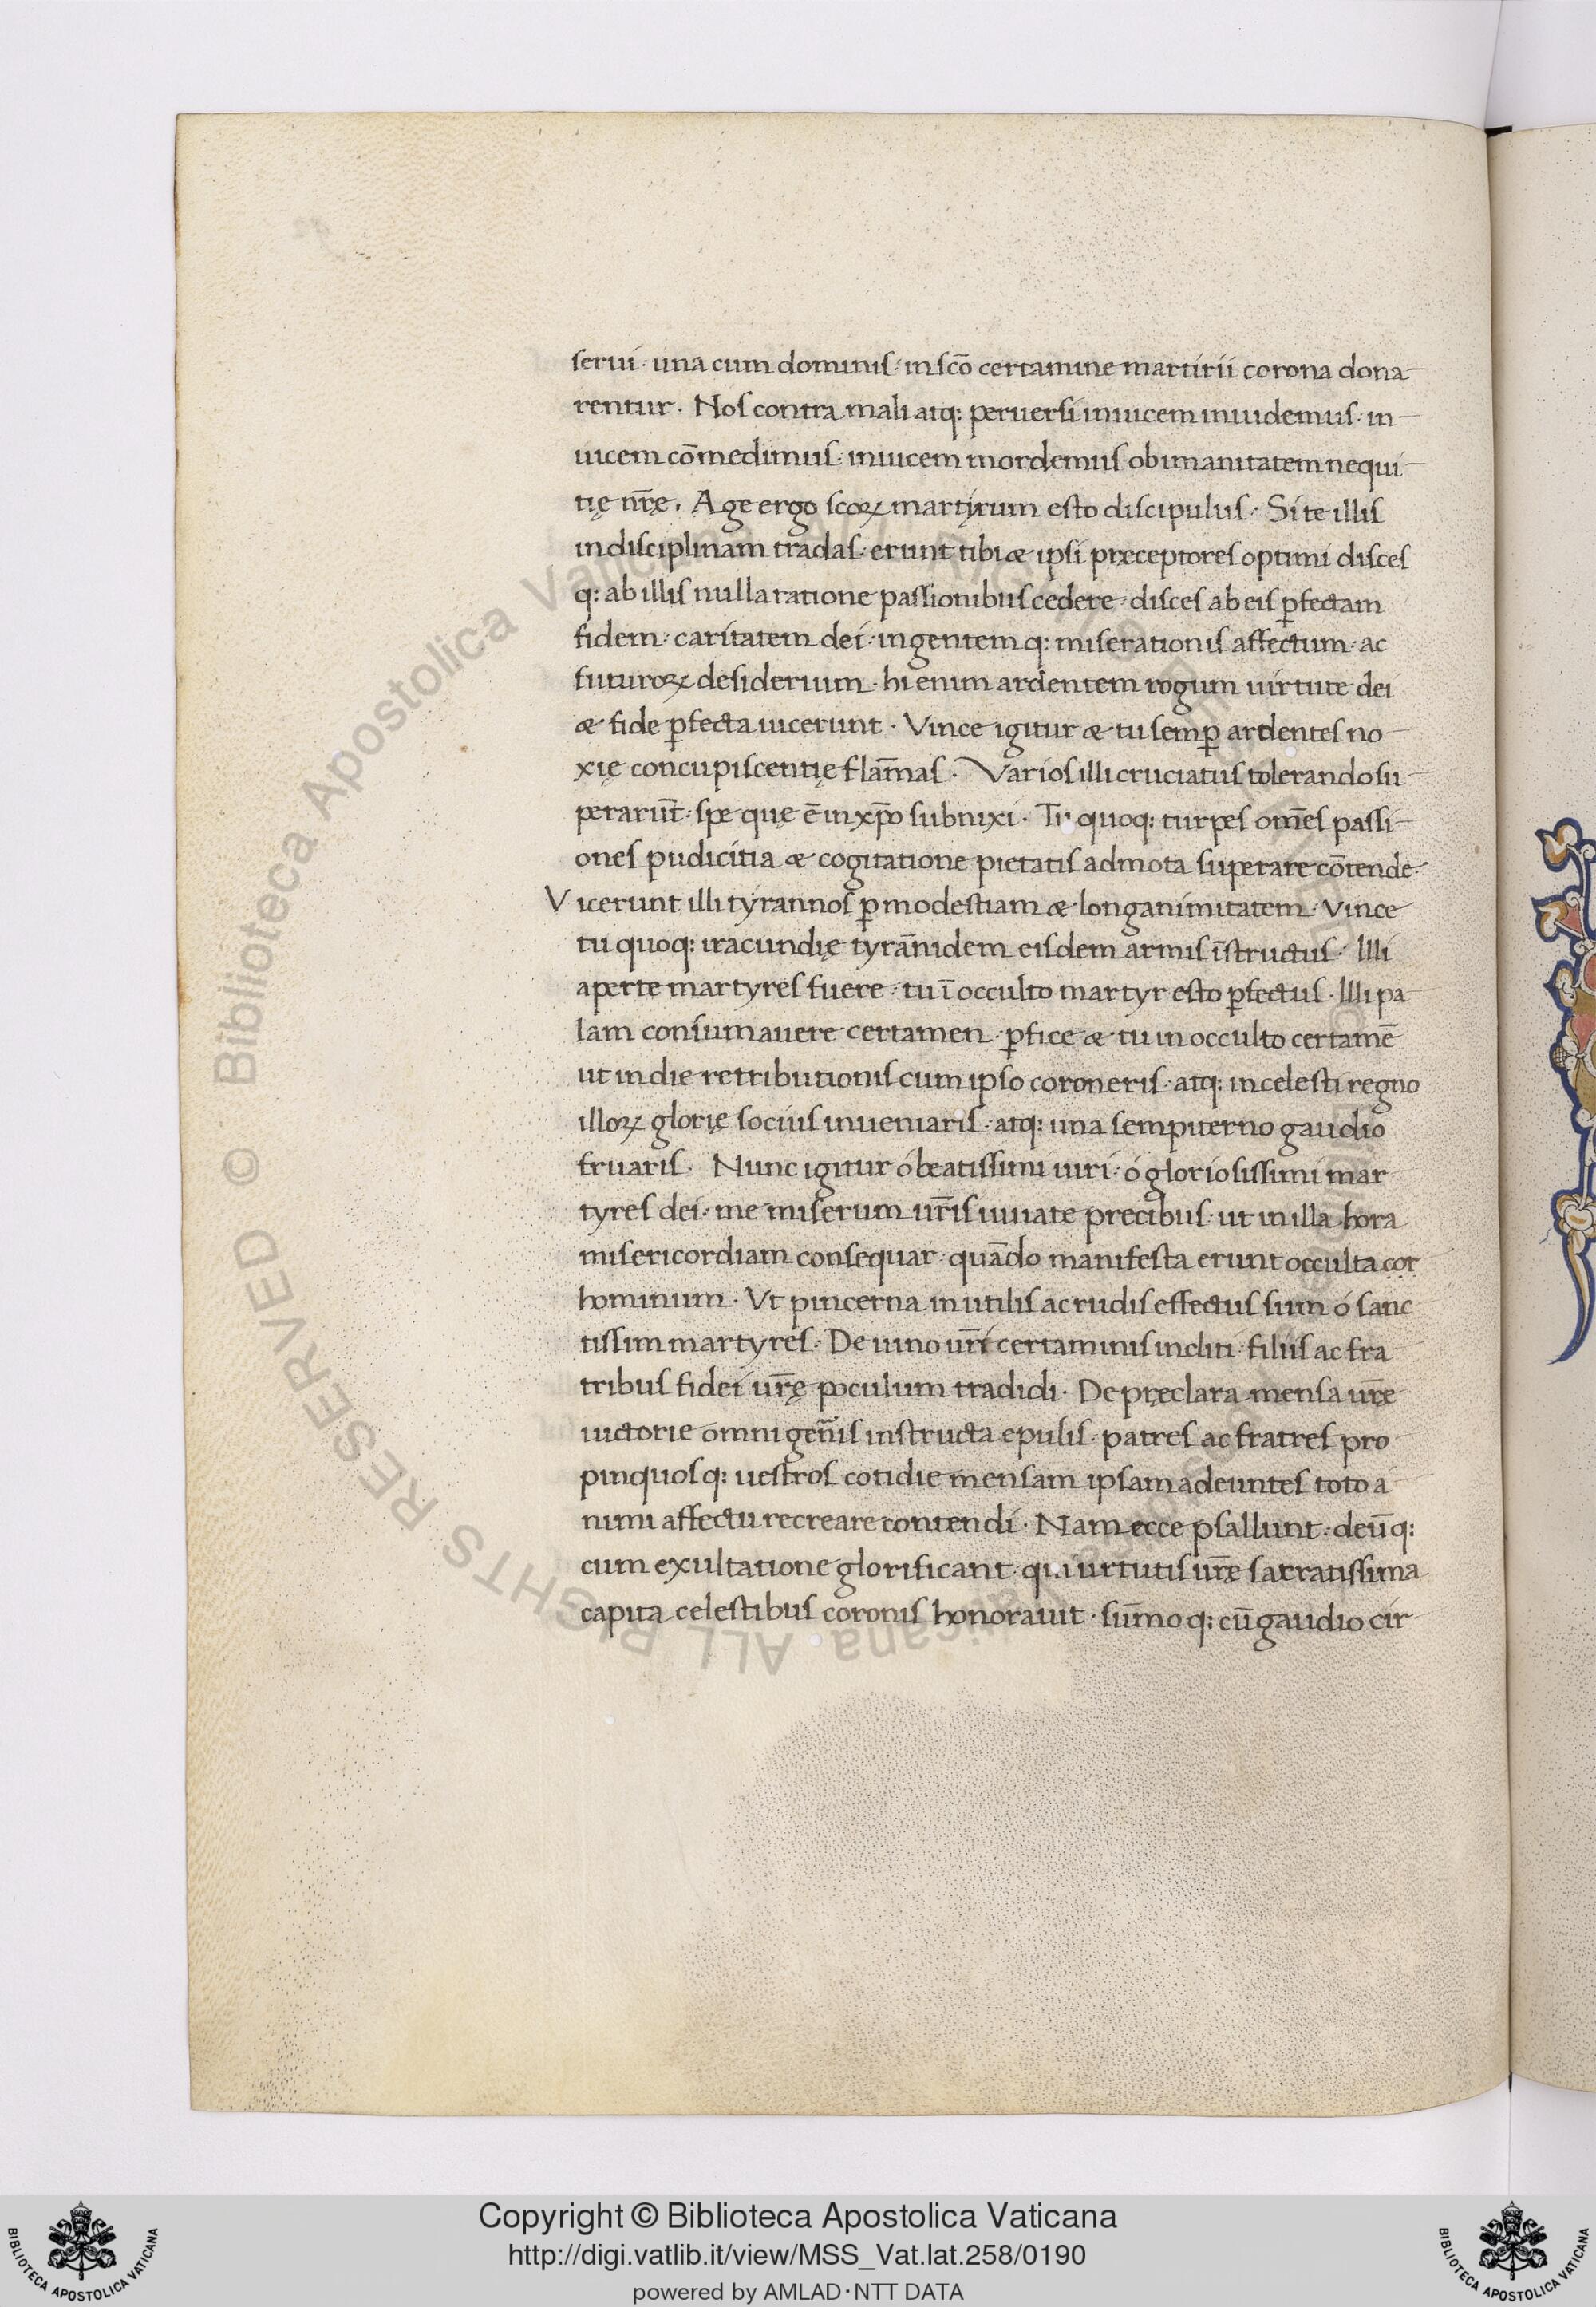 serui · una cum dominis · in sc̄o certamine martirii corona dona
rentur · Nos contra mali atq: peruersi inuicem inuidemus · in
uicem cōmedimus · inuicem mordemus ob imanitatem nequi
tię nr̄ę · Age ergo scoꝝ martyrum esto discipulus · Si te illis
in disciplinam tradas · erunt tibi æ ipsi pręceptores optimi disces
q: ab illis nulla ratione passionibus cedere · disces ab eis ꝑfectam
fidem · caritatem dei · ingentem q: miserationis affectum · ac
futuroꝝ desiderium · hi enim ardentem rogum uirtute dei
æ fide ꝑfecta uicerunt · Vince igitur æ tu semꝑ ardentes no
xię concupiscentię flam̄as · Varios illi cruciatus tolerando su
perarun̄t · spe quę ē in xp̄o subnixi · Tu quoq: turpes om̄es passi
ones pudicitia æ cogitatione pietatis admota superare cōtende ·
Vicerunt illi tyrannos ꝑ modestiam æ longanimitatem · Vince
tu quoq: iracundię tyrānidem eisdem armis īstructus · Illi
aperte martyres fuere · tu ī occulto martyr esto ꝑfectus · Illi pa
lam consumauere certamen · ꝑfice æ tu in occulto certamē
ut in die retributionis cum ipso coroneris · atq: in celesti regno
illoꝝ glorię socius inueniaris · atq: una sempiterno gaudio
fruaris · Nunc igitur ó beatissimi uiri · ó gloriosissimi mar
tyres dei · me miserum ur̄is iuuate precibus · ut in illa hora
misericordiam consequar · quādo manifesta erunt occulta cor
hominum · Vt pincerna inutilis ac rudis effectus sum ó sanc
tissim martyres · De uino ur̄i certaminis incliti · filiis ac fra
tribus fidei ur̄ę poculum tradidi · De pręclara mensa ur̄ę
uictorie omnigen̄is instructa epulis · patres ac fratres pro
pinquos q: uestros cotidie mensam ipsam adeuntes toto a
nimi affectu recreare contendi · Nam ecce psallunt · deū q:
cum exultatione glorificant · qui urtutis ur̄ę sacratissima
capita celestibus coronis honorauit · sūmo q: cū gaudio cir
Copyright © Biblioteca Apostolica Vaticana
http://digi.vatlib.it/view/MSS_Vat.lat.258/0190
powered by AMLAD · NTT DATA
BIBLIOTECA APOSTOLICA VATICANA
BIBLIOTECA APOSTOLICA VATICANA
© Biblioteca Apostolica Vaticana ALL RIGHTS RESERVED